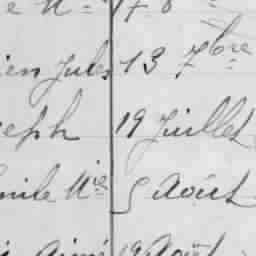 ien Jules 13 7bre
seph 19 Juillet
mile Nie 5 Août
Aimé 19 Août